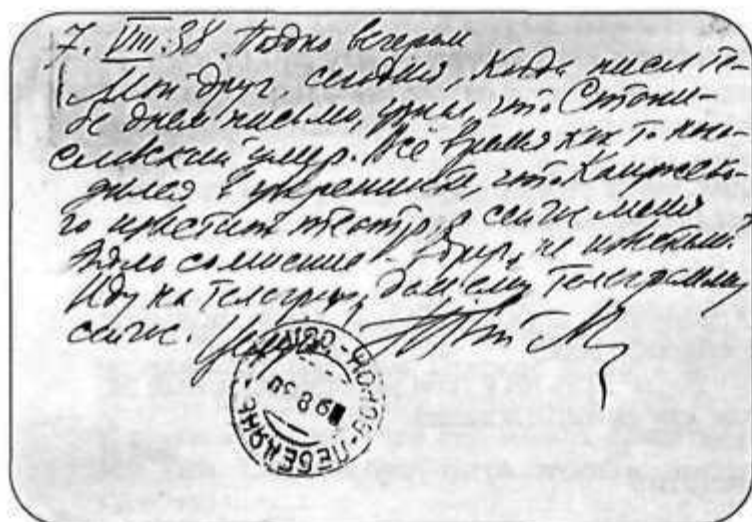 7. VIII. 38. Поздно вечером
Мой друг, сегодня, когда писал те-
бе днем письмо, узнал, что Стани-
славский умер. Всё время как то нахо-
дился в уверенности, что Калужско-
го известит театр, а сейчас меня
взяло сомнение - вдруг, не известили?
Иду на телеграф, дам ему телеграмму
сейчас. Целую. Твой М.
ЛЕБЕДЯНЬ
9 8 38